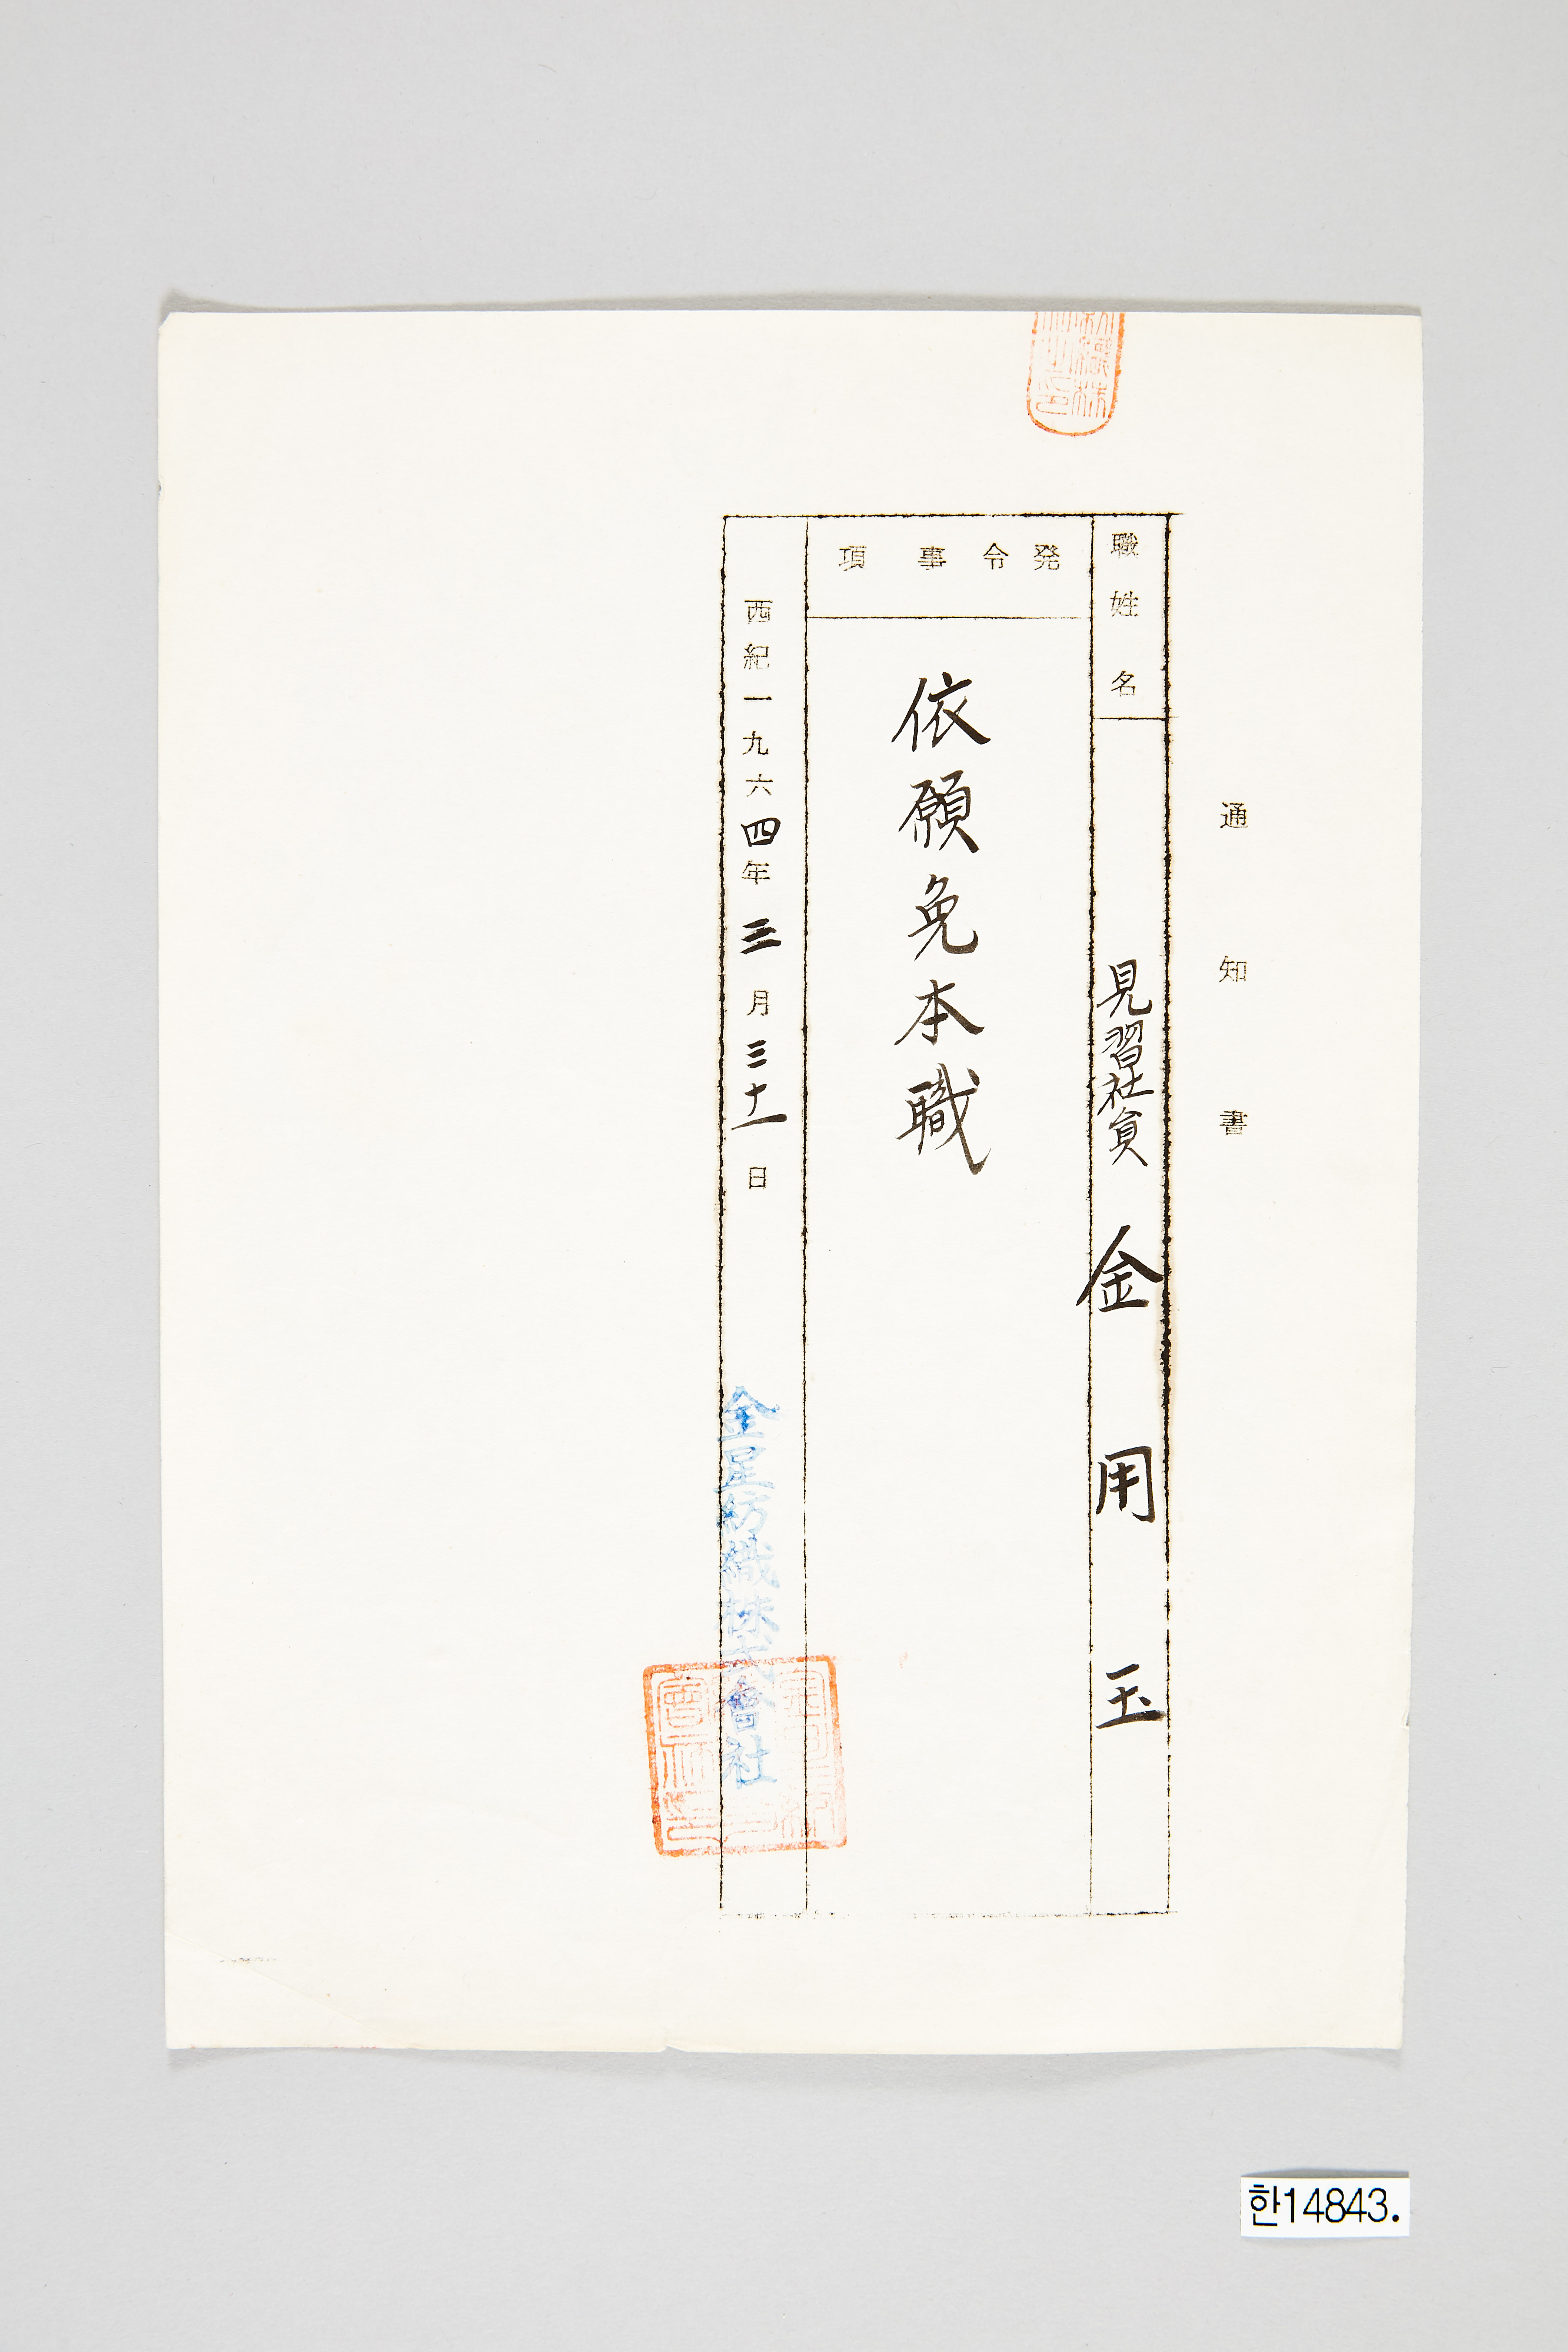 通知書
職姓名
見習社員 金用玉
発令事項
依願免本職
西紀一九六四年三月三十一日
金星紡織株式會社
한14843.